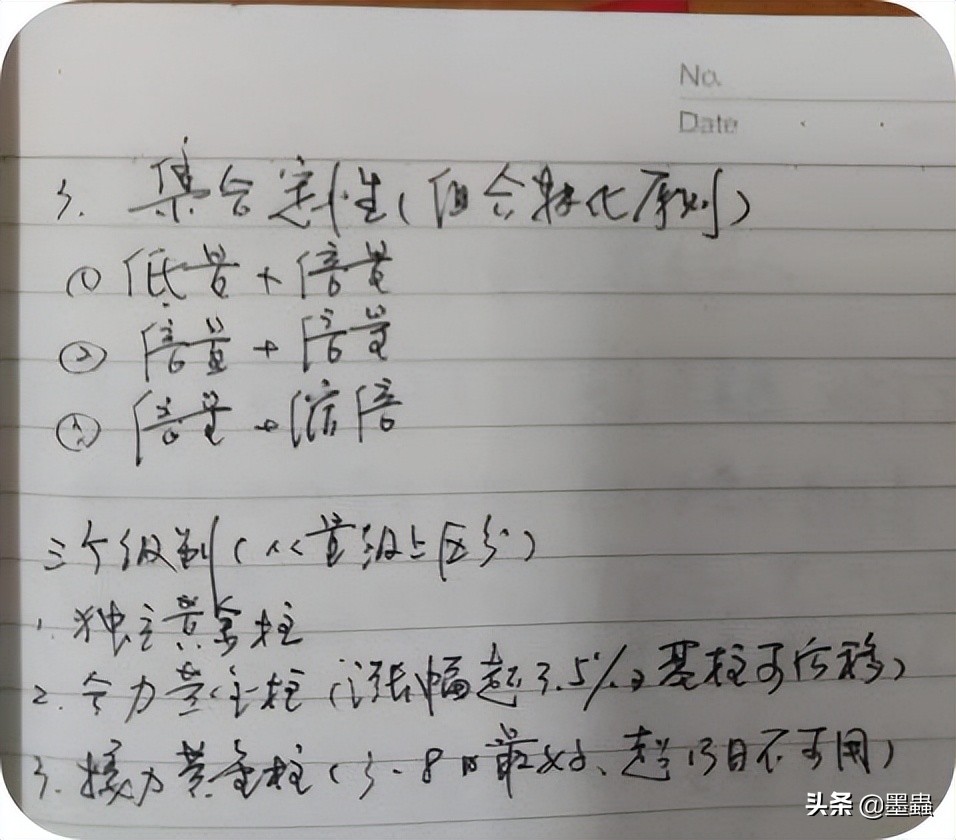 No.
Date
3. 集合定性(组合转化原则)
① 低量+倍量
② 倍量+倍量
③ 倍量+缩倍
三个级别(从量级上区分)
1. 独立黄金柱
2. 合力黄金柱(涨幅超3.5%,基柱可后移)
3. 接力黄金柱(3-8日最好、超13日不可用)
头条 @墨蟲